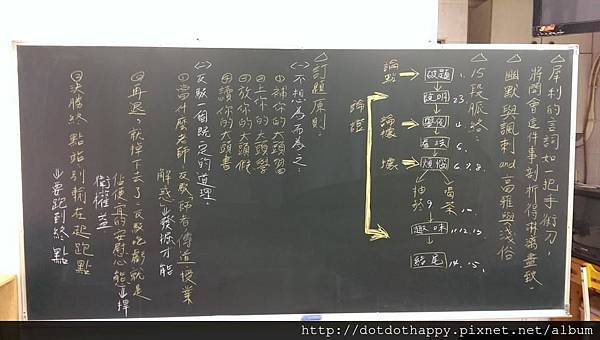 △犀利的言詞如一把手術刀，
將開會這件事剖析得淋漓盡致
幽默與諷刺and高雅與淺俗
△15段脈絡：
論點
破題 1.
說明 2.3
論證
論據
舉例 4.
看法 5.
據
煩惱 6.7.8.
抽菸 9
喝茶 10.
趣味 11.12.13
結尾 14.15.
△訂題原則：
(一)不想為而為之：
①補你的大頭習
②上你的大頭學
③放你的大頭假
④讀你的大頭書
(二)反駁一個既定的道理，
①當什麼老師 反駁 師者傳道授業
解惑 發揮才能
②再退，就掉下去了 反駁 吃虧就是
佔便宜的安慰心態 捍
衛權益
③決勝終點站 別輸在起跑點
要跑到終點
http://dotdothappy.pixnet.net/album